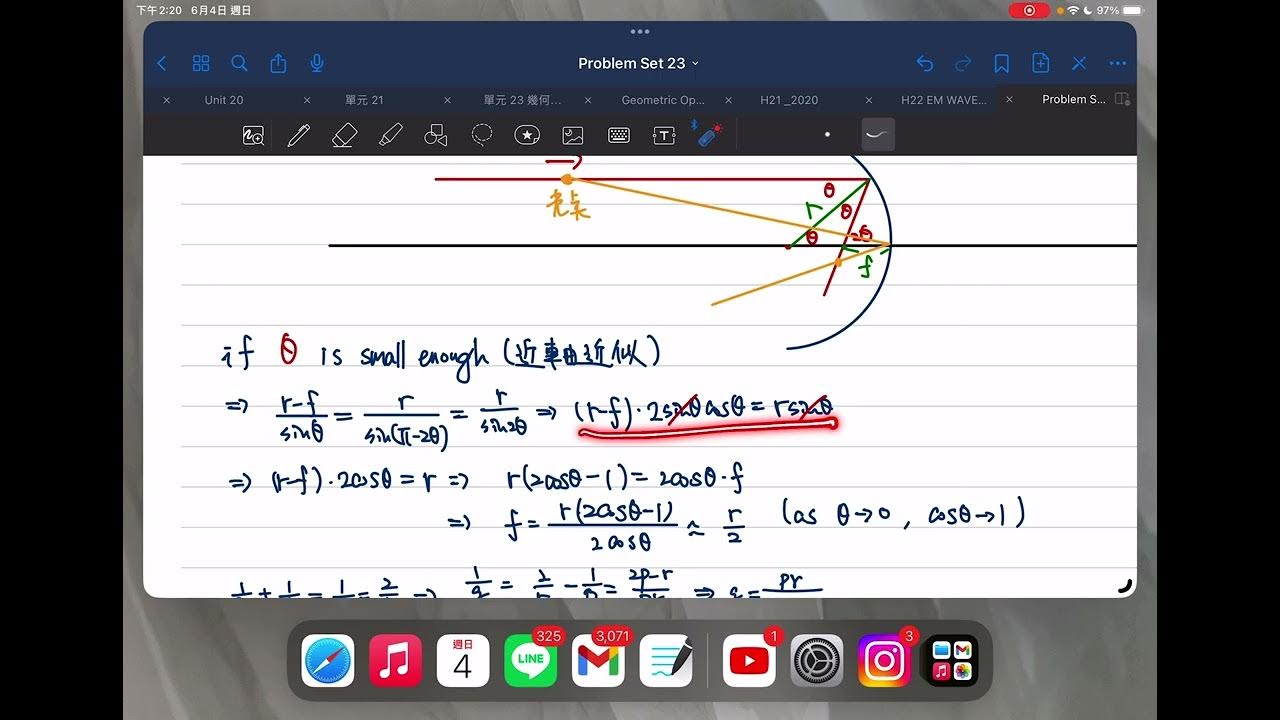 下午 2:20 6月4日 週日
97%
Problem Set 23
Unit 20
單元 21
單元 23 幾何...
Geometric Op...
H21 _2020
H22 EM WAVE...
Problem S...
T
光点
θ
r
θ
θ
2θ
f
if θ is small enough (近軸近似)
⇒ (r-f)/sinθ = r/sin(π-2θ) = r/sin2θ ⇒ (r-f)·2sinθcosθ = rsinθ
⇒ (r-f)·2cosθ = r ⇒ r(2cosθ-1) = 2cosθ·f
⇒ f = r(2cosθ-1)/2cosθ ≈ r/2 (as θ→0, cosθ→1)
週日
4
LINE
325
3,071
1
3